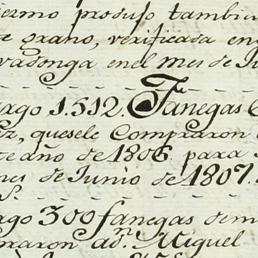 iermo produjo tambie
e grano, verificada en
vadonga en el mes de Ju
argo 1.512. Fanegas C
iz, quesele Compraron
te año de 1806. para
mes de Junio de 1807.
rgo 300 fanegas de m
praron a dn. Miguel